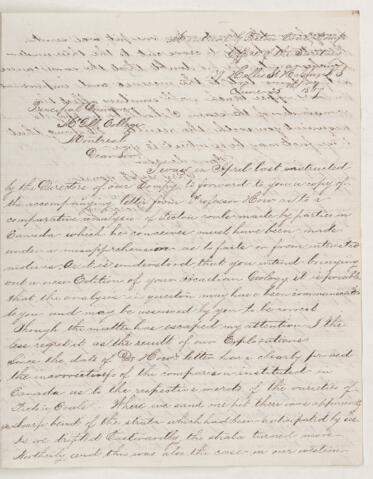 Montreal & Pictou Coal Comp
Hollis St Halifax N S
June 25th 1867
Principal Dawson
McGill College
Montreal
Dear Sir
I was in April last instructed
by the Directors of our Compy to forward to you a copy of
the accompanying letter from Professor How as to a
comparative analysis of Pictou coals made by parties in
Canada which he conceives must have been made
under a misapprehension as to facts or from interested
motives. As it is understood that you intend bringing
out a new Edition of your Acadian Geology it is possible
that the analysis in question may have been communicated
to you and may be assumed by you to be correct
Though the matter has escaped my attention I the
less regret it as the result of our Explorations
since the date of Dr How's letter has clearly proved
the incorrectness of the comparison instituted in
Canada as to the respective merits of the varieties of
Pictou Coals. Where we sank our pit there was apparently
a sharp bend of the strata which had been anticipated by us
As we drifted Eastwardly the strata turned more
Northerly and this was also the case in our western